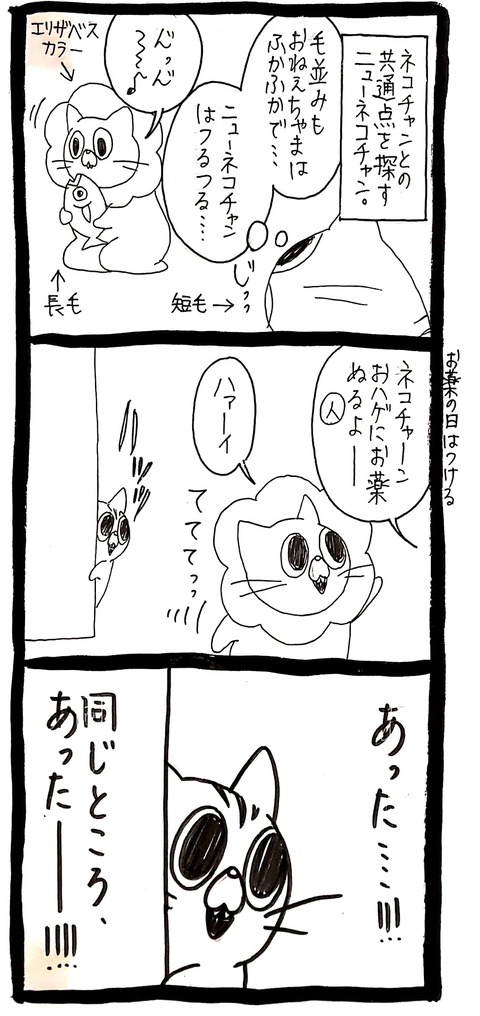 ネコチャンとの
共通点を探す
ニューネコチャン。
毛並みも
おねえちゃまは
ふかふかで…
ニューネコチャン
はつるつる…
じっ
短毛→
んっん
～～♪
エリザベス
カラー
長毛
お薬の日はつける
ネコチャーン
おハゲにお薬
ぬるよー
人
ハァーイ
てててっ
あった…!!!
同じところ、
あったー!!!!